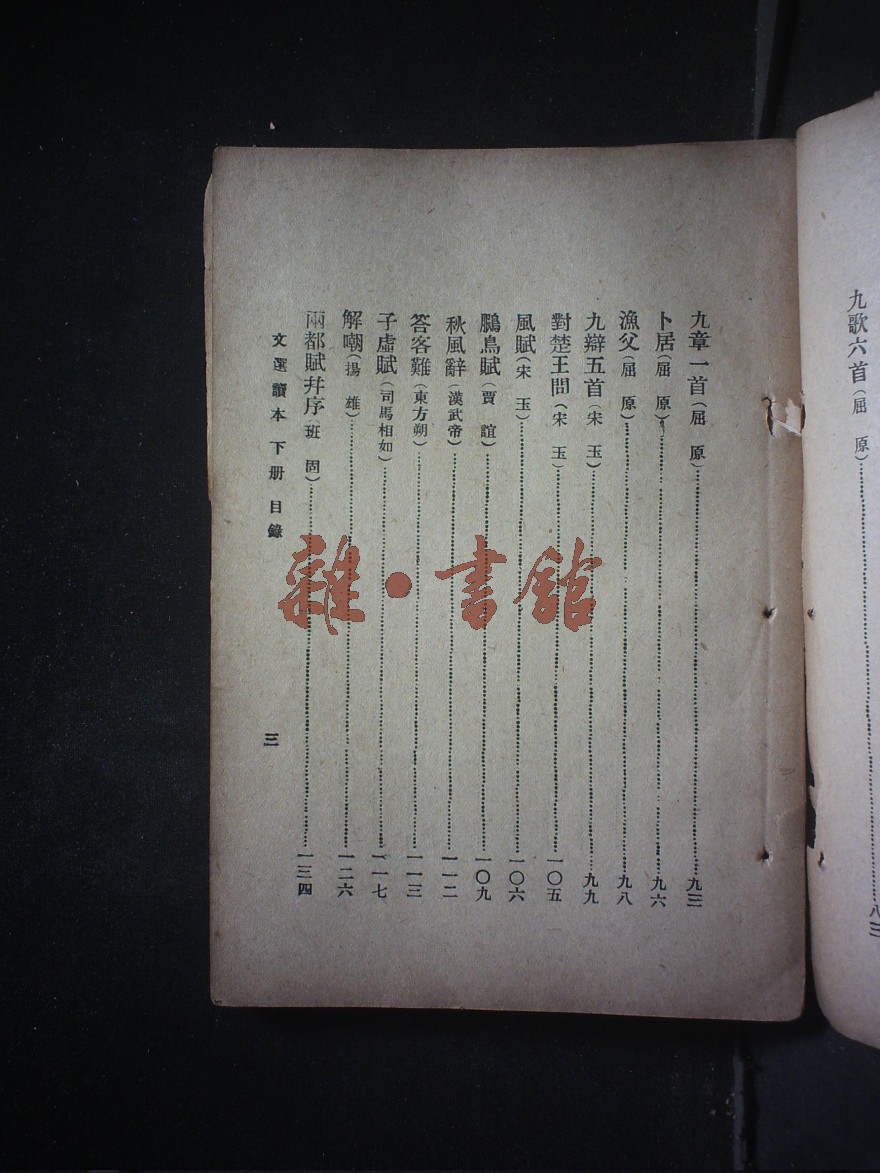 九歌六首(屈　原)……八三
九章一首(屈　原)……九三
卜居(屈　原)……九六
漁父(屈　原)……九八
九辯五首(宋　玉)……九九
對楚王問(宋　玉)……一〇五
風賦(宋　玉)……一〇六
鵩鳥賦(賈　誼)……一〇九
秋風辭(漢武帝)……一一二
答客難(東方朔)……一一三
子虛賦(司馬相如)……一一七
解嘲(揚　雄)……一二六
兩都賦幷序(班　固)……一三四
文選讀本　下册　目錄
三
雜·書館